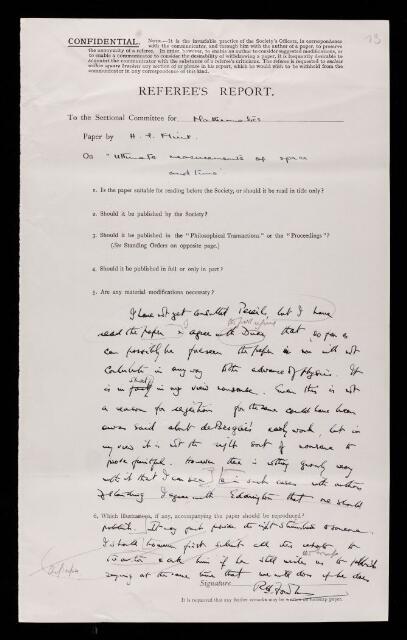 73
CONFIDENTIAL. NOTE.—It is the invariable practice of the Society's Officers, in correspondence
with the communicator, and through him with the author of a paper, to preserve
the anonymity of a referee. In order, however, to enable an author to consider suggested modifications, or
to enable a communicator to consider the desirability of withdrawing a paper, it is frequently desirable to
acquaint the communicator with the substance of a referee's criticisms. The referee is requested to enclose
within square brackets any section of or phrase in his report, which he would wish to be withheld from the
communicator in any correspondence of this kind.
REFEREE'S REPORT.
To the Sectional Committee for Mathematics
Paper by H. T. Flint
On "Ultimate measurements of space
and time"
1. Is the paper suitable for reading before the Society, or should it be read in title only?
2. Should it be published by the Society?
3. Should it be published in the "Philosophical Transactions" or the "Proceedings"?
(See Standing Orders on opposite page.)
4. Should it be published in full or only in part?
5. Are any material modifications necessary?
I have not yet consulted, but I have
the first referee
read the paper & agree with Dirac that, so far as
can possibly be foreseen the paper in no will not
contribute in any way to the advance of Physics. It
is in fact in my view nonsense. Even this is not
a reason for rejection for the same could have been
said about de Broglie's early work, but in
my view it is not the right sort of nonsense to
prove fruitful. However there is nothing grossly wrong
with it that I can see & in such cases with authors
of standing I agree with Eddington that we should
6. Which illustrations, if any, accompanying the paper should be reproduced?
publish. It may just provide the right stimulus to someone.
I should however first submit all this to
ask him if he still wishes us to publish
saying at the same time that we will do so if he does
Signature R H Fowler
It is requested that any further remarks may be written on foolscap paper.